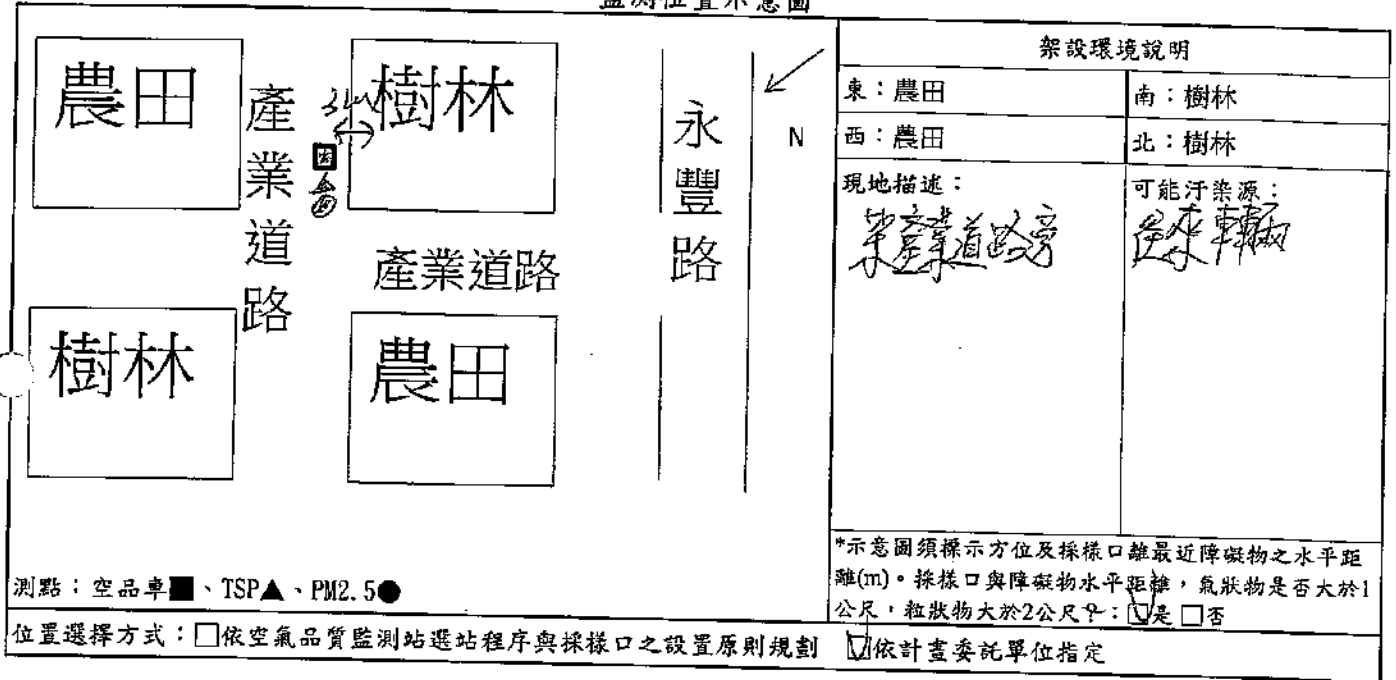 監測位置示意圖
農田
產業道路
樹林
永豐路
N
產業道路
樹林
農田
測點：空品車■、TSP▲、PM2.5●
架設環境說明
東：農田
南：樹林
西：農田
北：樹林
現地描述：
產業道路旁
可能汙染源：
來車輛
*示意圖須標示方位及採樣口離最近障礙物之水平距
離(m)。採樣口與障礙物水平距離，氣狀物是否大於1
公尺，粒狀物大於2公尺?：☑是 □否
位置選擇方式：□依空氣品質監測站選站程序與採樣口之設置原則規劃 ☑依計畫委託單位指定